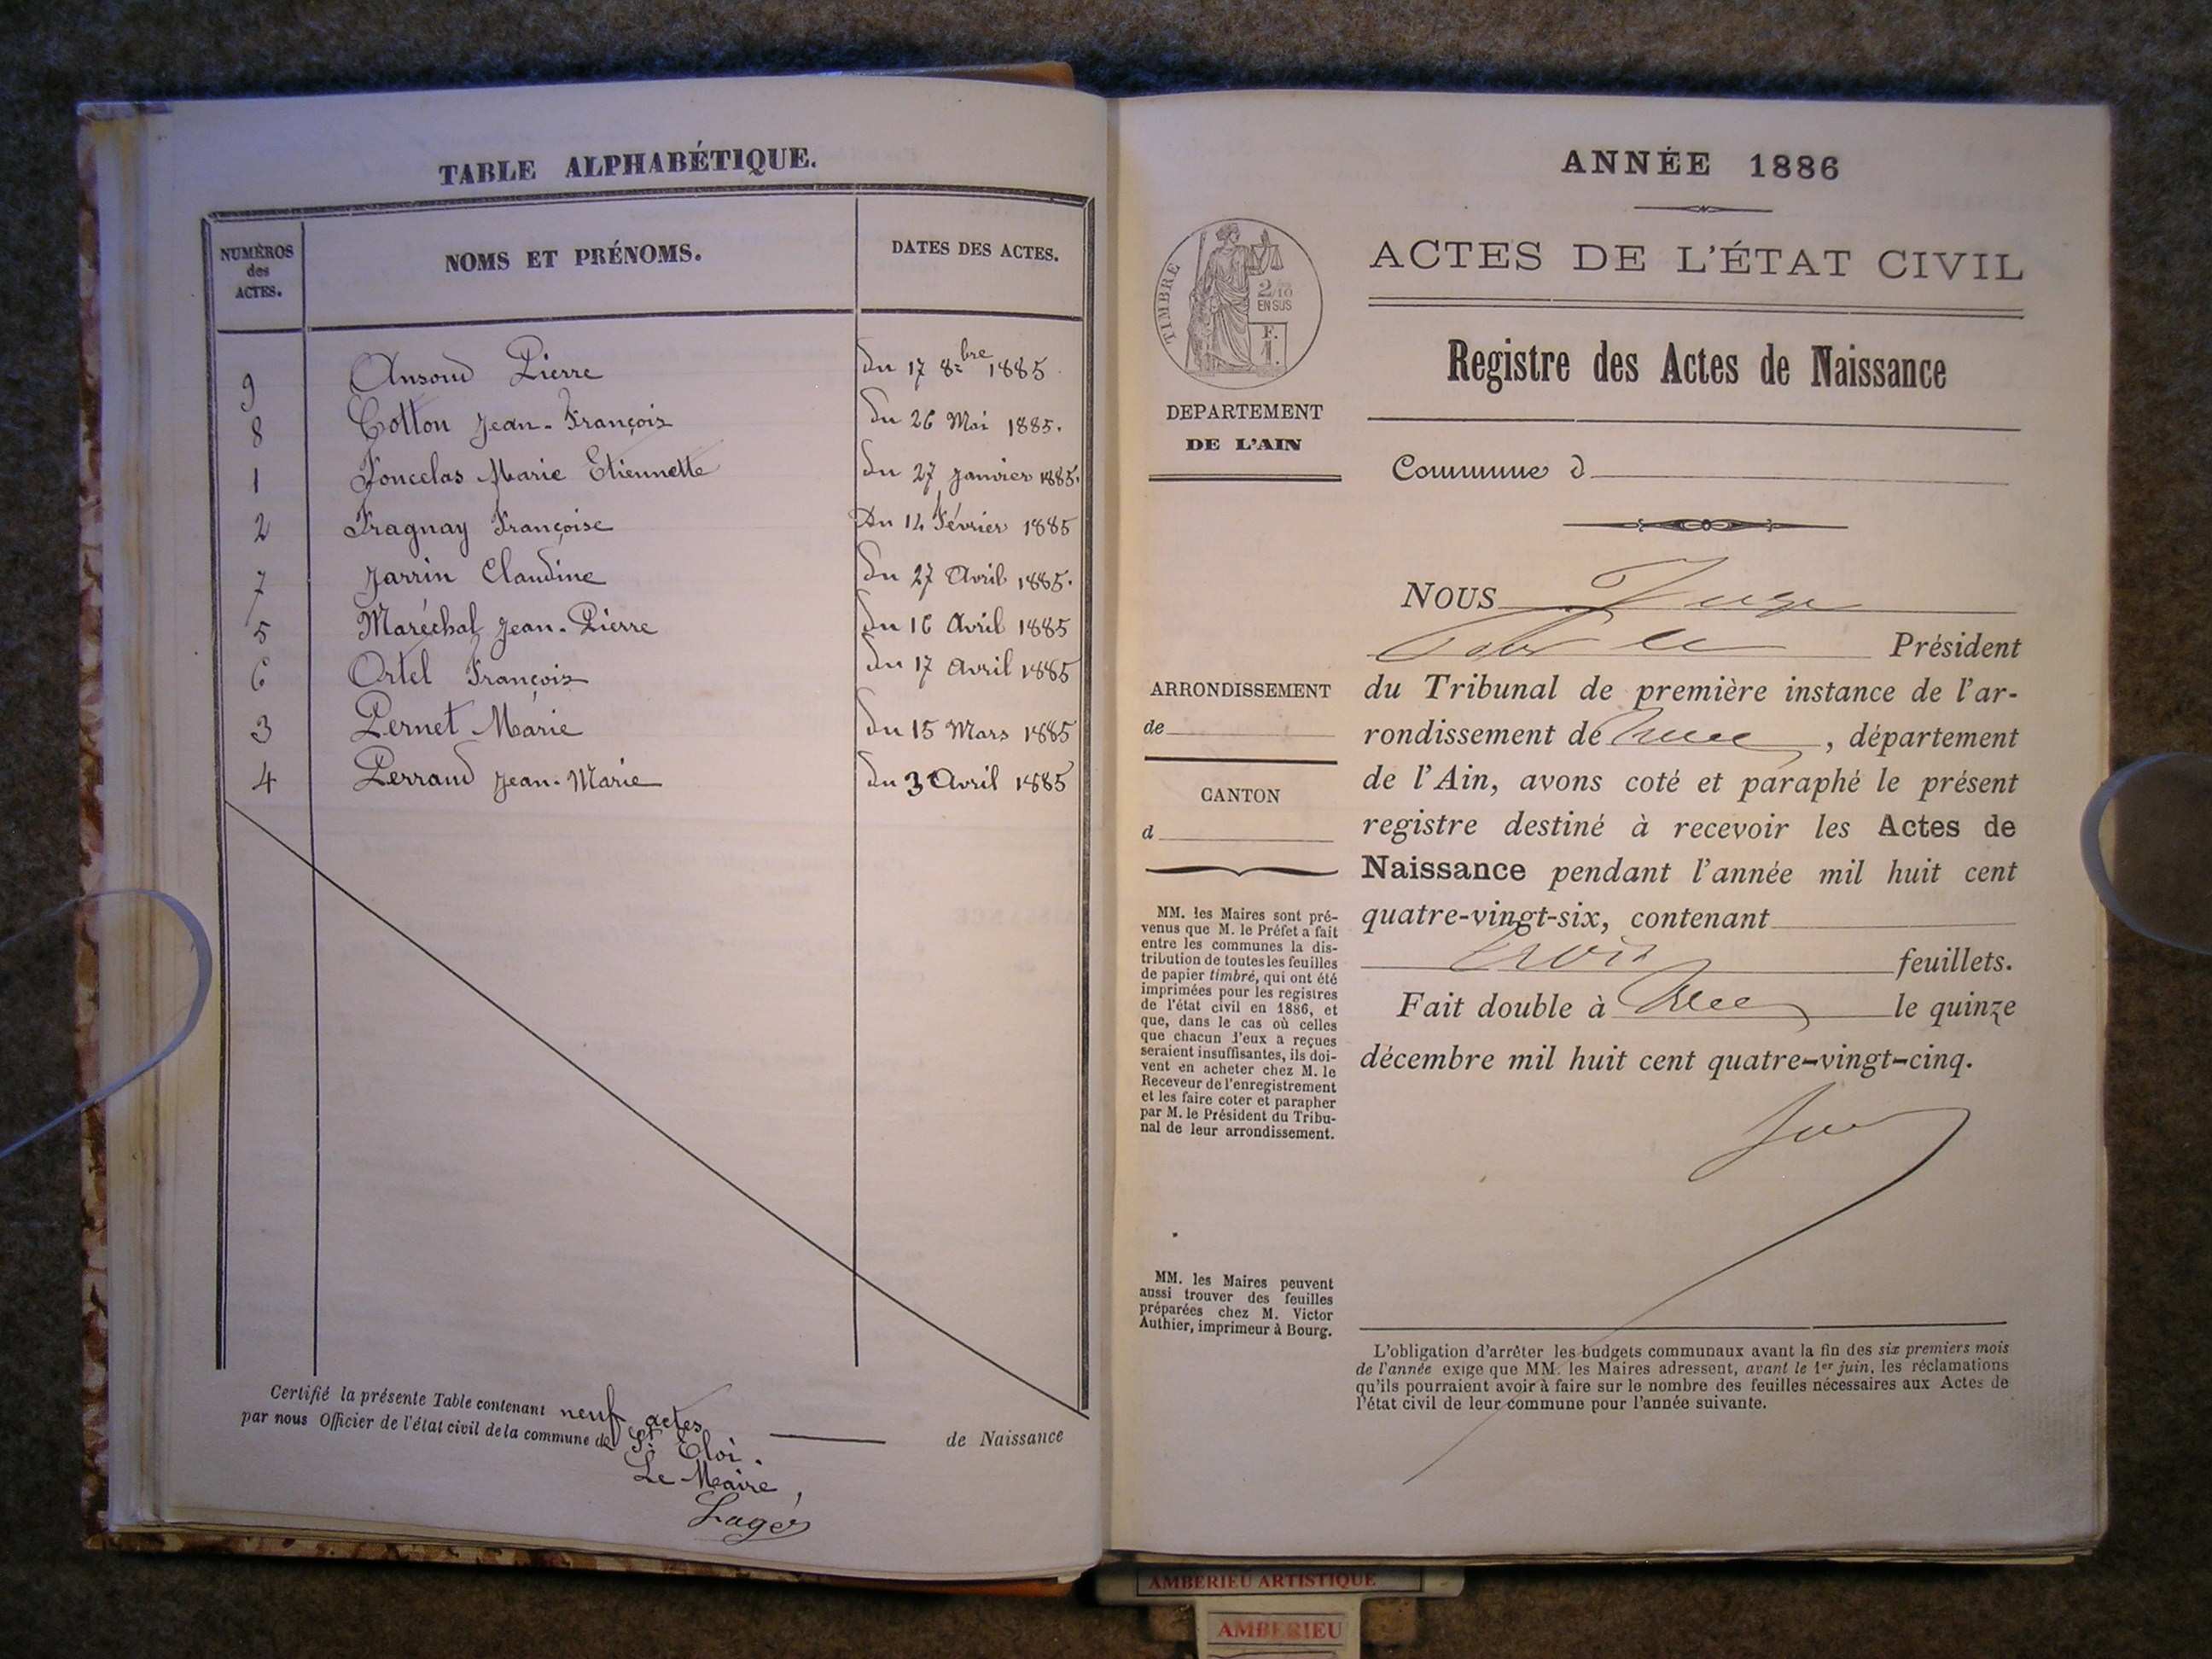 TABLE ALPHABÉTIQUE.
NUMÉROS des ACTES. NOMS ET PRÉNOMS. DATES DES ACTES.
9 Ansoud Pierre du 17 8bre 1885
8 Cotton Jean-François du 26 Mai 1885.
1 Foncelas Marie Etiennette du 27 Janvier 1885.
2 Fragnay Françoise Du 12 Février 1885
7 Jarrin Claudine du 27 Avril 1885.
5 Maréchal Jean-Pierre du 16 Avril 1885
6 Ortel François du 17 Avril 1885
3 Pernet Marie du 15 Mars 1885
4 Perraud Jean-Marie du 3 Avril 1885
Certifié la présente Table contenant neuf actes de Naissance
par nous Officier de l'état civil de la commune de St Eloi.
Le Maire,
ANNÉE 1886
ACTES DE L'ÉTAT CIVIL
Registre des Actes de Naissance
Commune d
TIMBRE
2/10
EN SUS
F.
1.
DEPARTEMENT
DE L'AIN
ARRONDISSEMENT
de
CANTON
d
MM. les Maires sont pré-
venus que M. le Préfet a fait
entre les communes la dis-
tribution de toutes les feuilles
de papier timbré, qui ont été
imprimées pour les registres
de l'état civil en 1886, et
que, dans le cas où celles
que chacun d'eux a reçues
seraient insuffisantes, ils doi-
vent en acheter chez M. le
Receveur de l'enregistrement
et les faire coter et parapher
par M. le Président du Tribu-
nal de leur arrondissement.
MM. les Maires peuvent
aussi trouver des feuilles
préparées chez M. Victor
Authier, imprimeur à Bourg.
NOUS
Président
du Tribunal de première instance de l'ar-
rondissement de , département
de l'Ain, avons coté et paraphé le présent
registre destiné à recevoir les Actes de
Naissance pendant l'année mil huit cent
quatre-vingt-six, contenant
trois feuillets.
Fait double à le quinze
décembre mil huit cent quatre-vingt-cinq.
L'obligation d'arrêter les budgets communaux avant la fin des six premiers mois
de l'année exige que MM. les Maires adressent, avant le 1er juin, les réclamations
qu'ils pourraient avoir à faire sur le nombre des feuilles nécessaires aux Actes de
l'état civil de leur commune pour l'année suivante.
AMBERIEU ARTISTIQUE
AMBERIEU